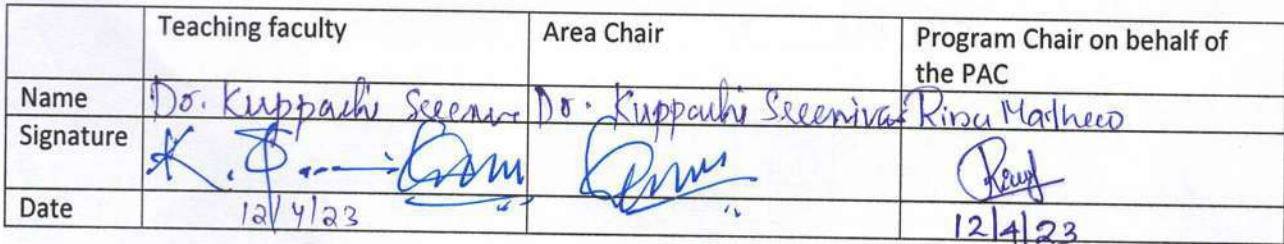 Teaching faculty Area Chair Program Chair on behalf of
the PAC
Name Dr. Kuppachi Sreenivas Dr. Kuppachi Sreenivas
Signature K. S
Date 12/4/23 12/4/23